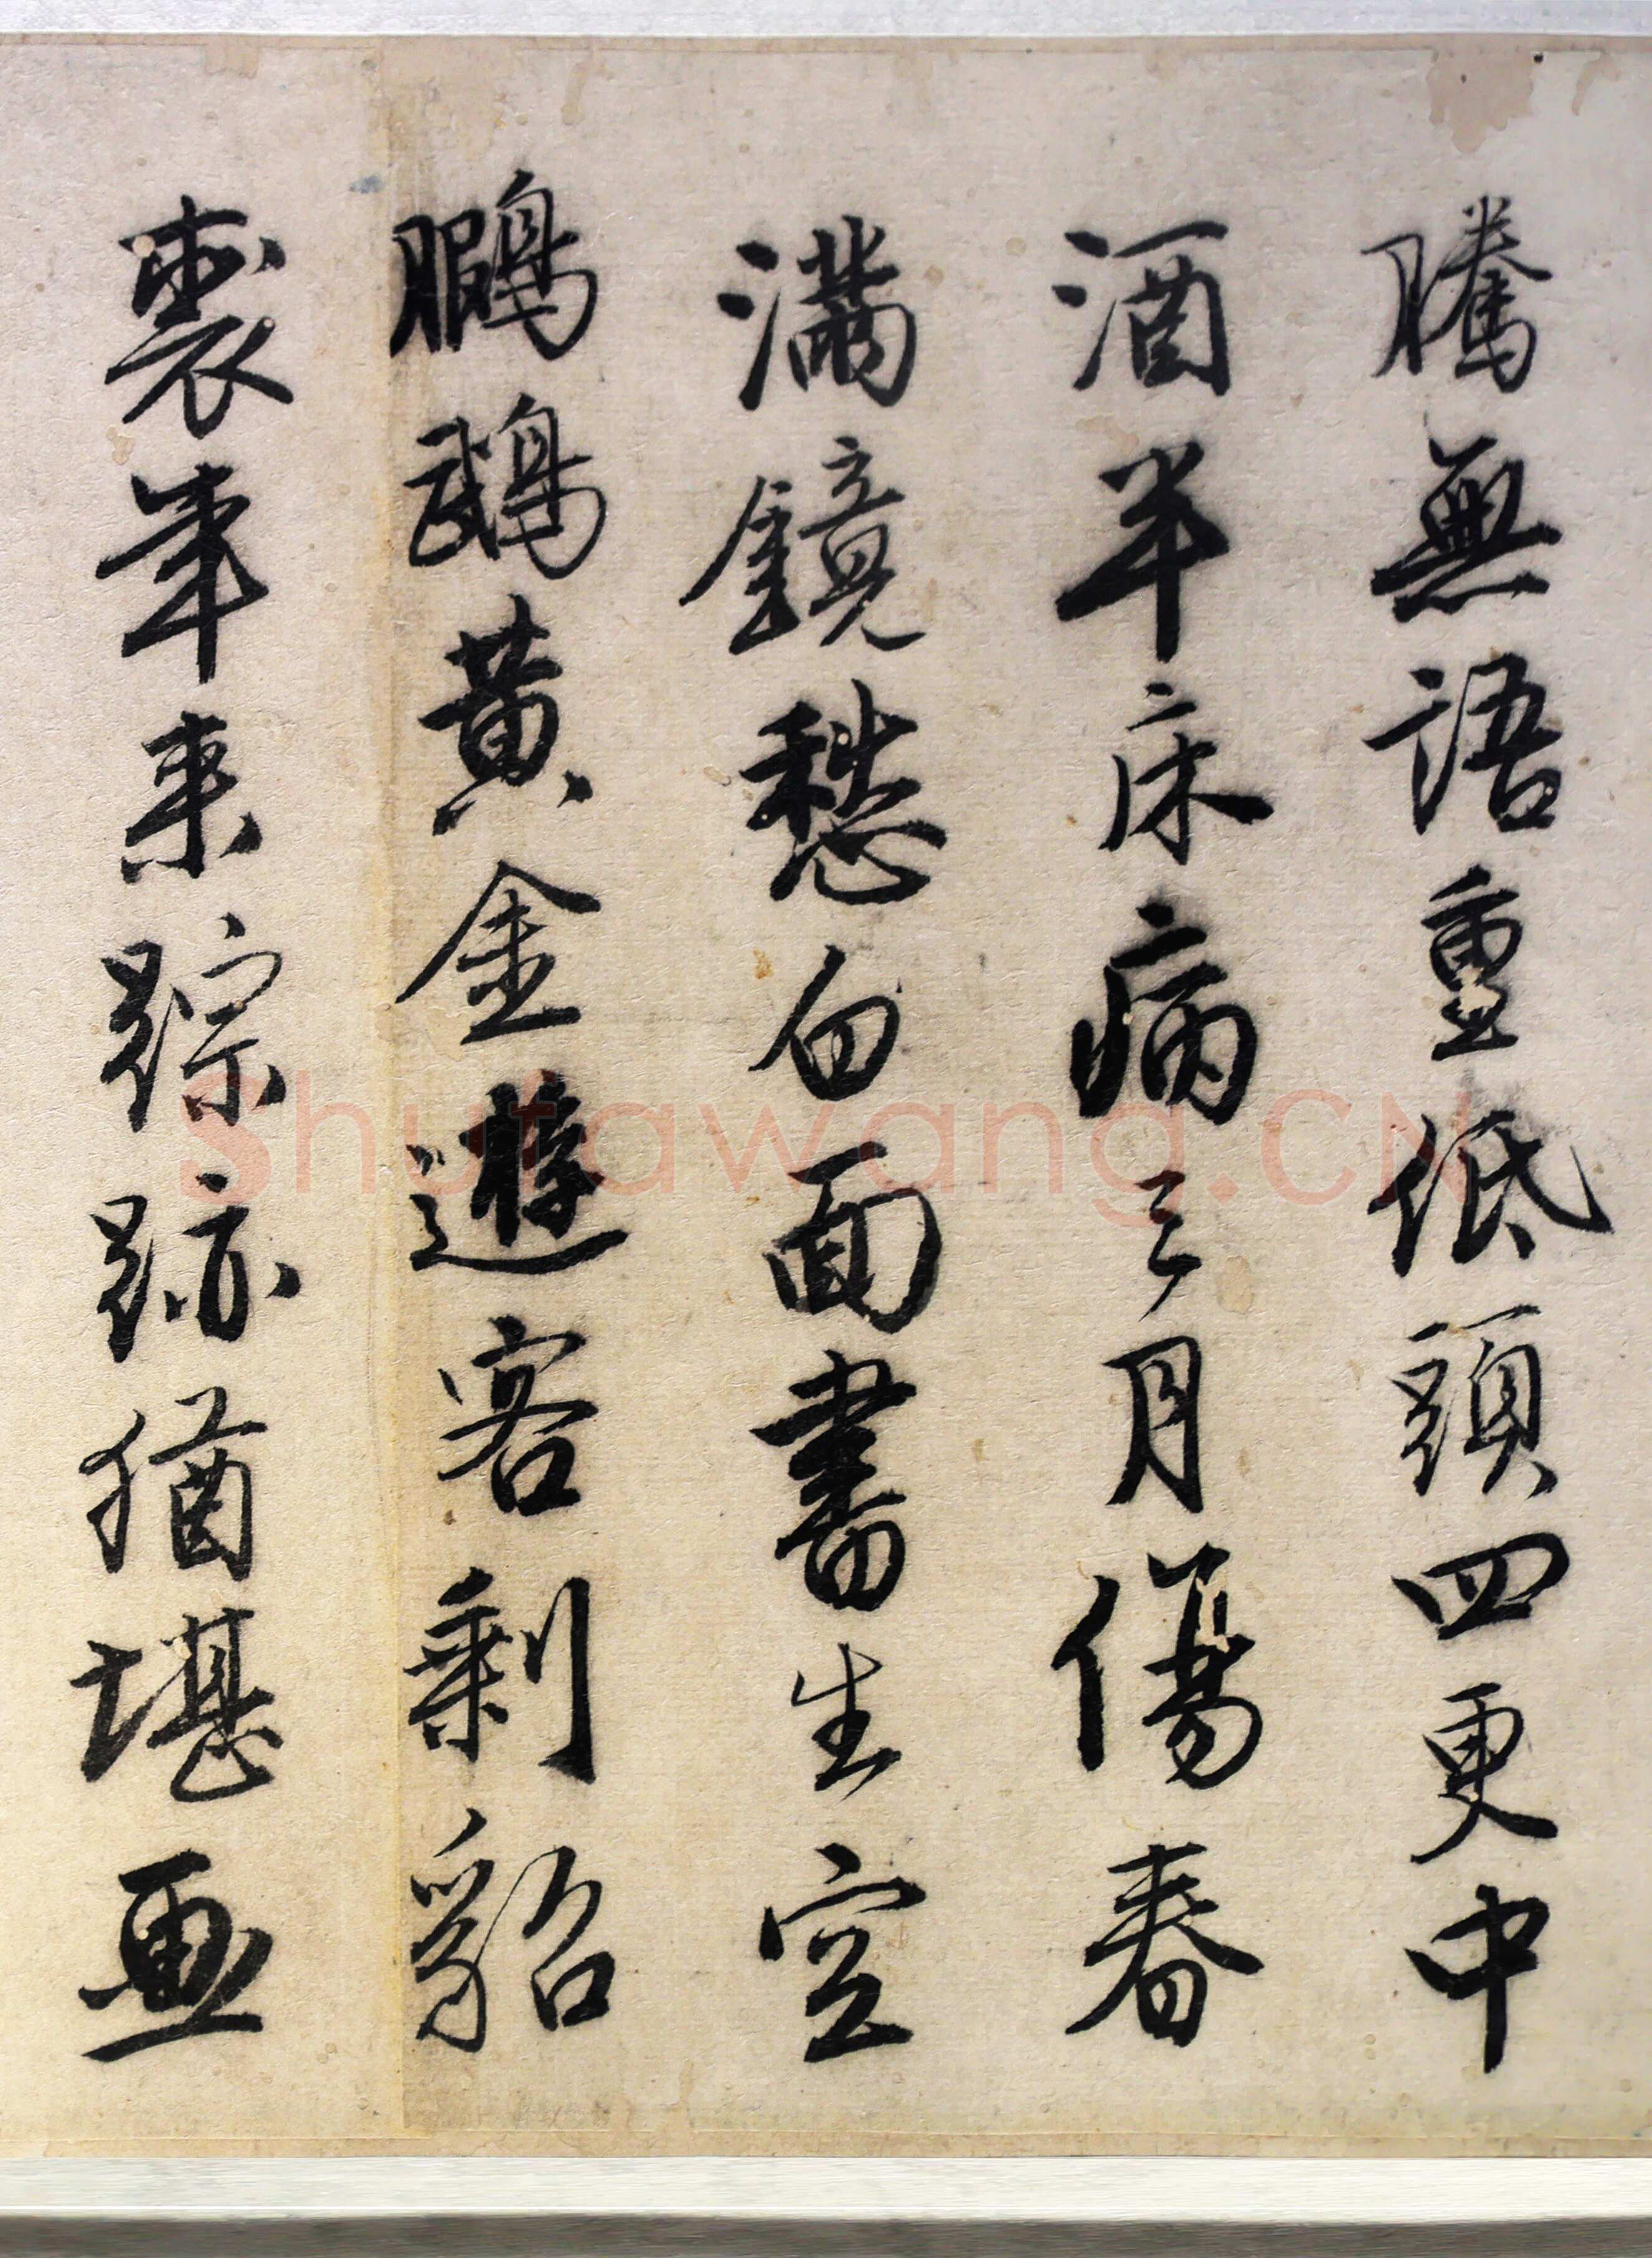 騰無語重低頭四更中
酒半床病三月傷春
滿鏡愁白面書生空
鵬鵡黃金遊客剩貂
裘年來踪跡猶堪画
Shufawang.CN